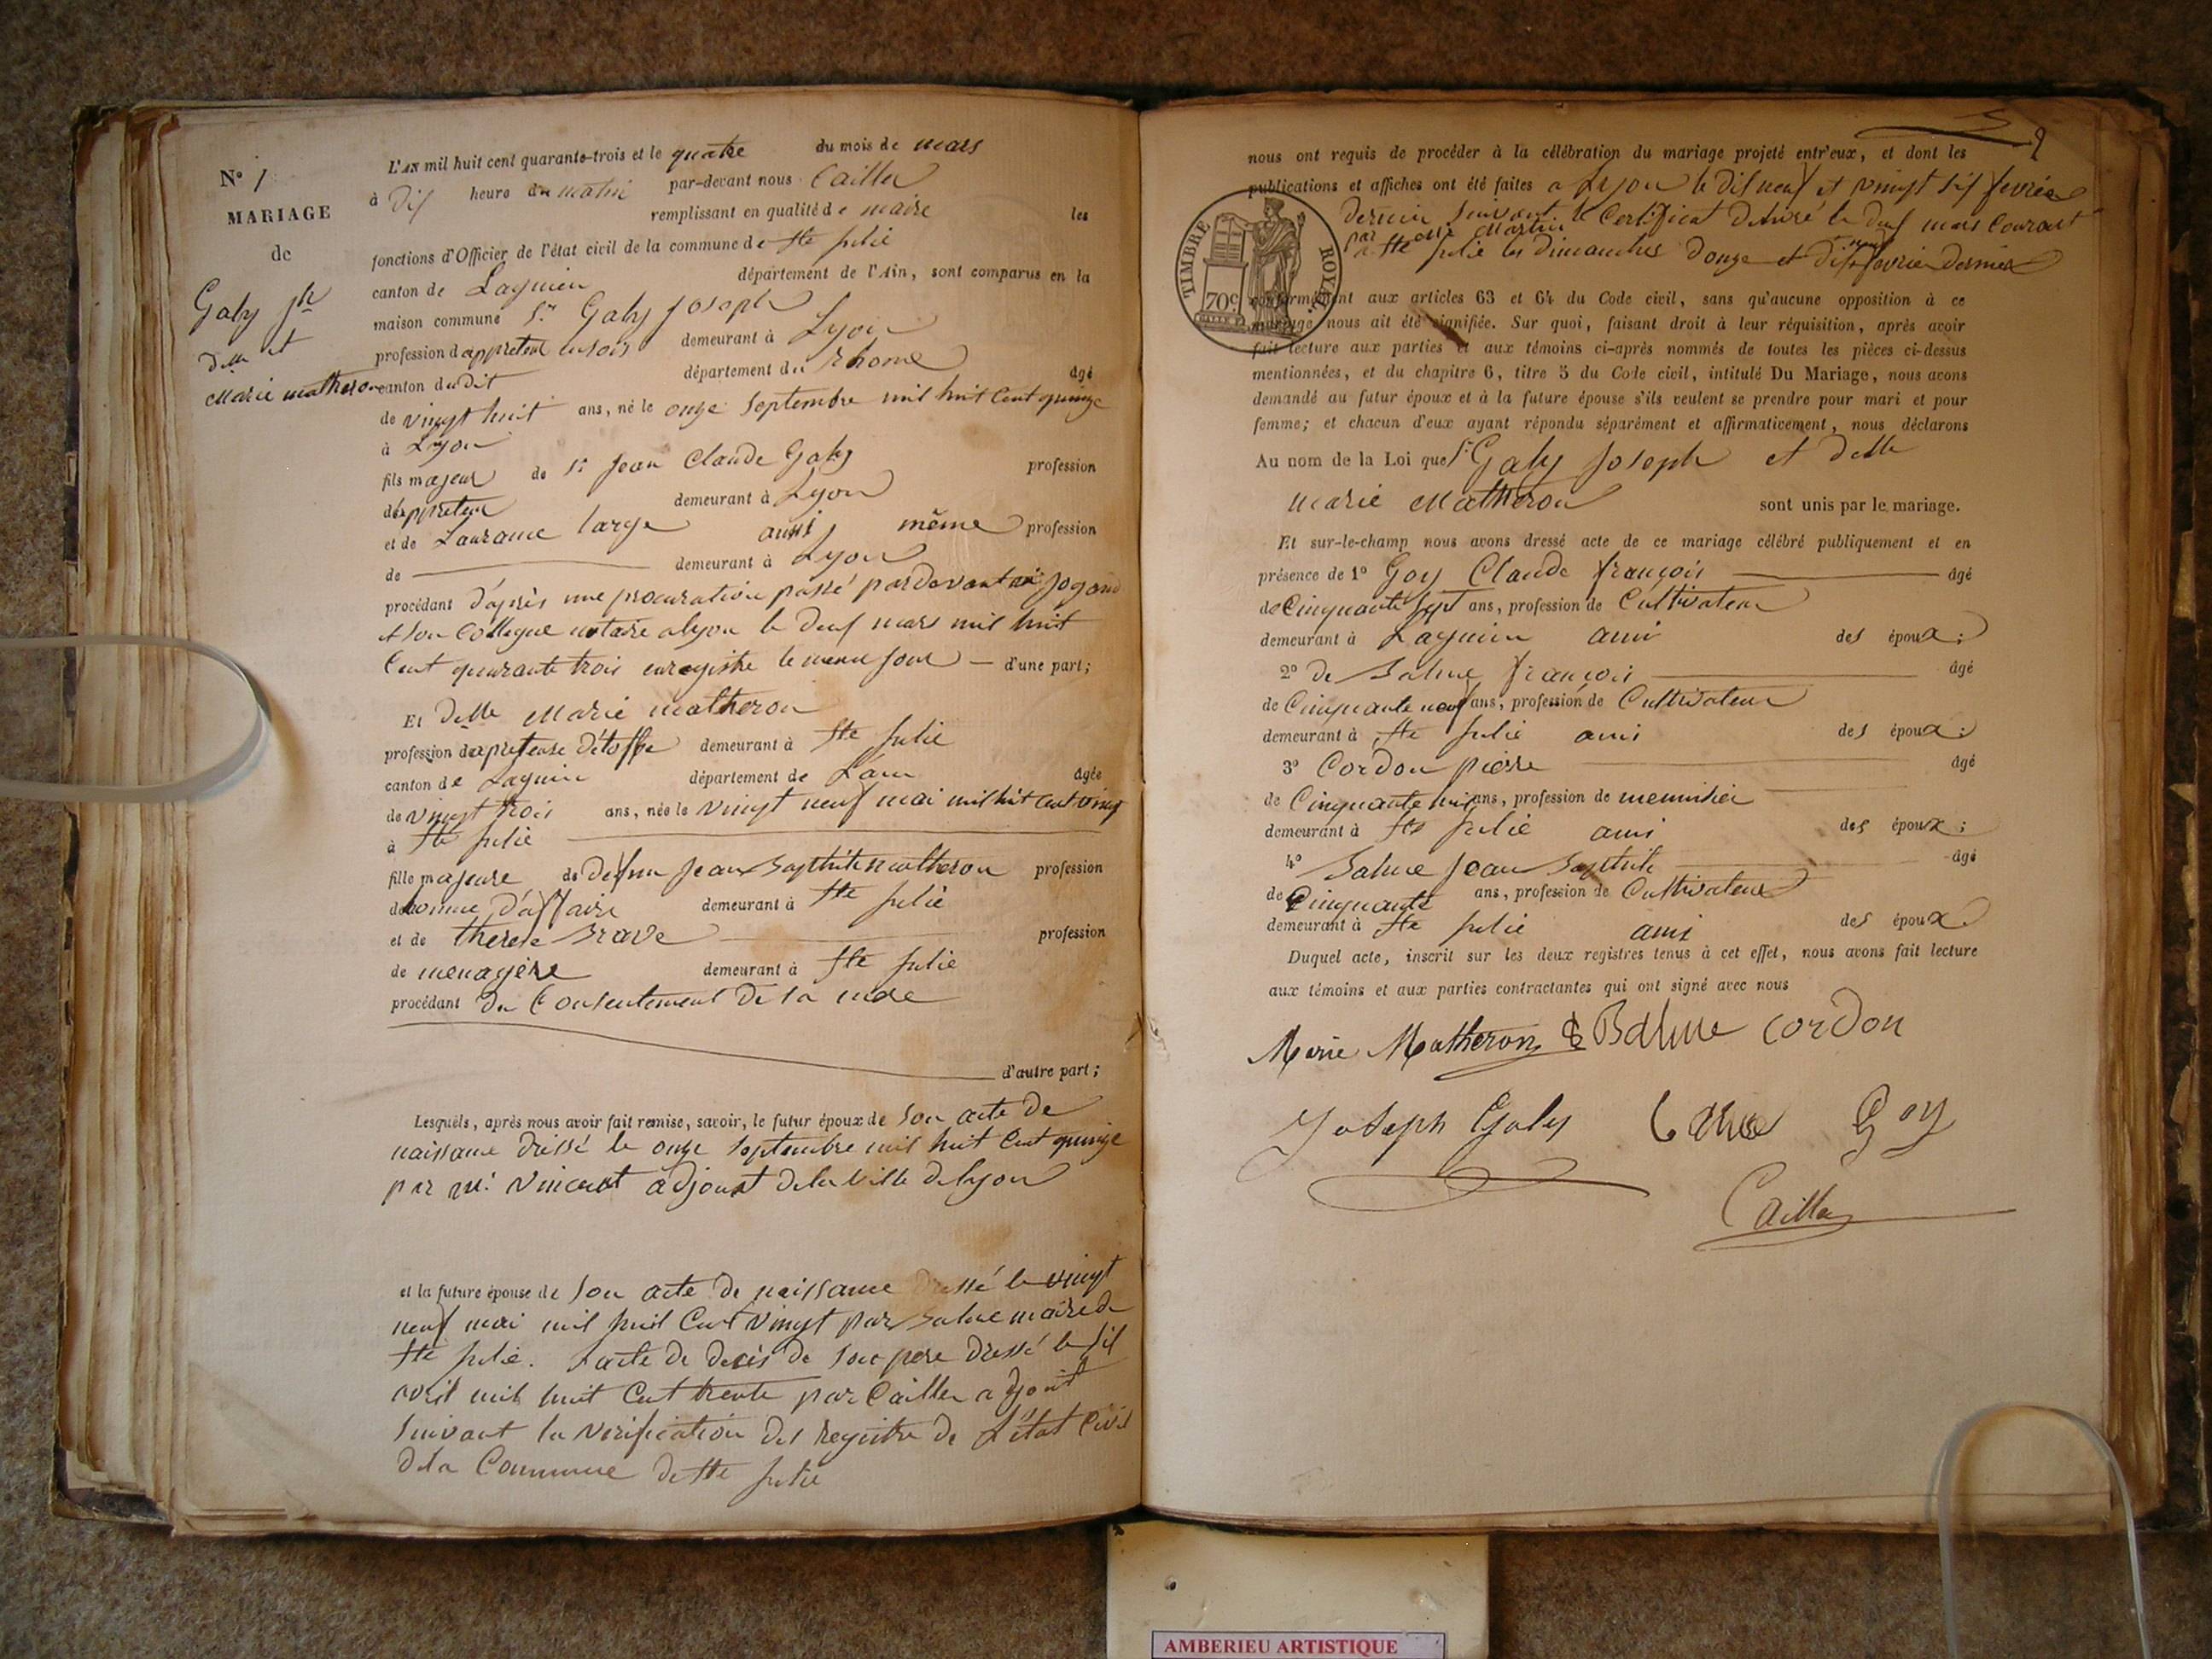 N° 1
MARIAGE
de
Galy Jh
et
Dlle
Marie Matheron
L'AN mil huit cent quarante-trois et le quatre du mois de mars
à Dix heure du matin par-devant nous Cailler
remplissant en qualité de maire les
fonctions d'Officier de l'état civil de la commune de Ste Julie
canton de Lagnieu département de l'Ain, sont comparus en la
maison commune Sr Galy Joseph
profession d'appreteur demeurant à Lyon
canton dudit département du Rhone âgé
de vingt huit ans, né le onze Septembre mil huit Cent quinze
à Lyon
fils majeur de Sr Jean Claude Galy profession
d'appreteur demeurant à Lyon
et de Laurance large aussi même profession
de demeurant à Lyon
procédant d'après une procuration passé pardevant me Jogand
et Son Collegue notaire a lyon le Deux mars mil huit
Cent quarante trois enregistre le meme Jour — d'une part;
Et Delle Marie matheron
profession d'apreteuse D'étoffe demeurant à Ste Julie
canton de Lagnieu département de L'ain âgée
de vingt trois ans, née le vingt neuf mai mil huit Cent vingt
à Ste Julie
fille majeure de Defun Jean Baptiste matheron profession
d'homme D'affaire demeurant à Ste Julie
et de therese Brave profession
de menagère demeurant à Ste Julie
procédant du Consentement De sa mere
d'autre part;
Lesquels, après nous avoir fait remise, savoir, le futur époux de Son acte De
naissance Dressé le onze Septembre mil huit Cent quinze
par Mr Vincent adjoint De la Ville de lyon
et la future épouse de Son acte De naissance Dressé le vingt
neuf mai mil huit Cent Vingt par Balme maire de
Ste Julie. Lacte De decès De Son pere Dressé le Six
avril mil huit Cent trente par Cailler adjoint
Suivant la Verification Des Registre De L'état Civil
De la Commune De Ste Julie
nous ont requis de procéder à la célébration du mariage projeté entr'eux, et dont les
publications et affiches ont été faites a Lyon le Dix neuf et vingt Six fevrier
Dernier Suivant le Certificat Delivré le deux mars Courant
par Martin
a Ste Julie les Dimanches Douze et Dix neuf fevrier Dernier
conformément aux articles 63 et 64 du Code civil, sans qu'aucune opposition à ce
mariage nous ait été signifiée. Sur quoi, faisant droit à leur réquisition, après avoir
fait lecture aux parties et aux témoins ci-après nommés de toutes les pièces ci-dessus
mentionnées, et du chapitre 6, titre 5 du Code civil, intitulé Du Mariage, nous avons
demandé au futur époux et à la future épouse s'ils veulent se prendre pour mari et pour
femme; et chacun d'eux ayant répondu séparément et affirmativement, nous déclarons
Au nom de la Loi que Sr Galy Joseph et Delle
Marie Matheron sont unis par le mariage.
Et sur-le-champ nous avons dressé acte de ce mariage célébré publiquement et en
présence de 1° Goy Claude françois âgé
de Cinquante Sept ans, profession de Cultivateur
demeurant à Lagnieu ami des époux;
2° de Balme françois âgé
de Cinquante neuf ans, profession de Cultivateur
demeurant à Ste Julie ami des époux;
3° Cordon pierre âgé
de Cinquante ans, profession de menuisier
demeurant à Ste Julie ami des époux;
4° Balme Jean Baptiste âgé
de Cinquante ans, profession de Cultivateur
demeurant à Ste Julie ami des époux
Duquel acte, inscrit sur les deux registres tenus à cet effet, nous avons fait lecture
aux témoins et aux parties contractantes qui ont signé avec nous
Marie Matheron Balme Cordon
Joseph Galy Goy
Cailler
TIMBRE ROYAL
70c
AMBERIEU ARTISTIQUE